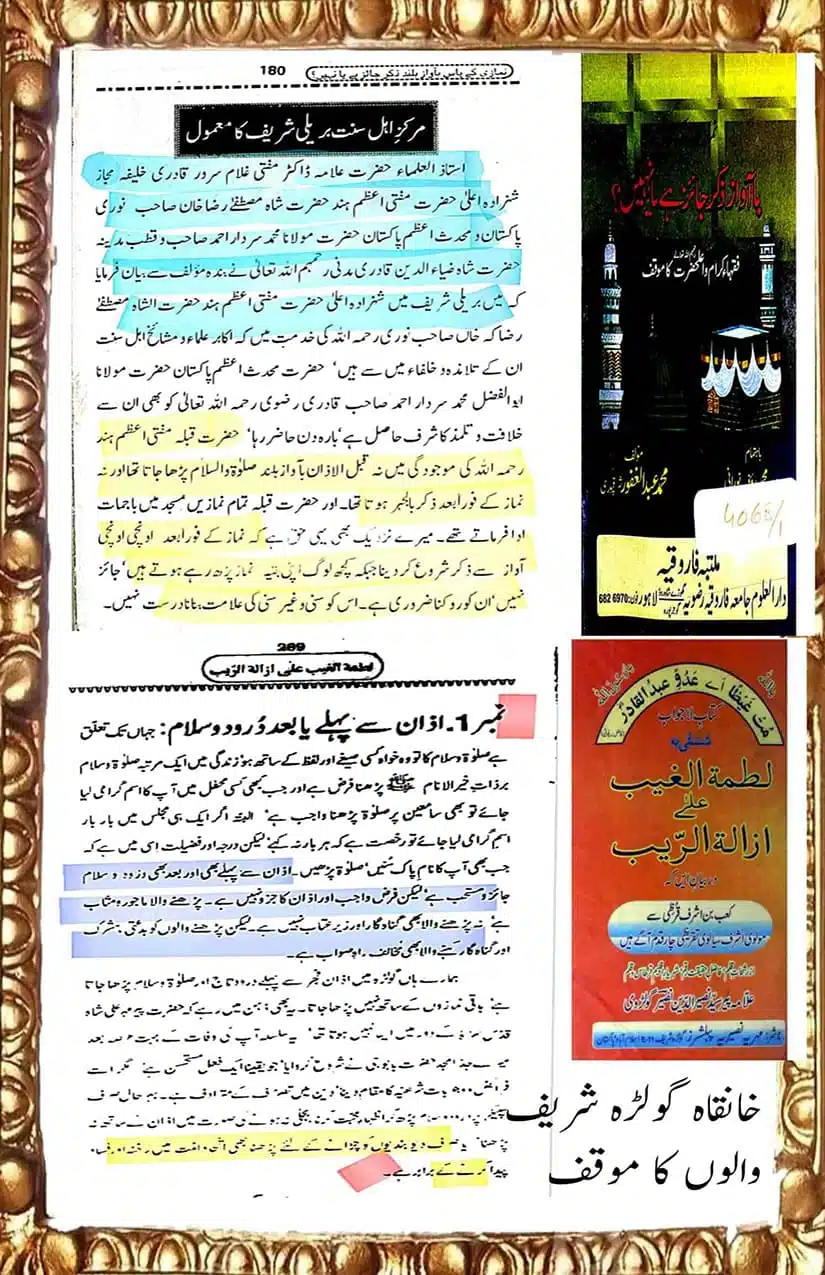 180
نمازی کے پاس بآواز بلند ذکر جائز ہے یا نہیں؟
مرکز اہل سنت بریلی شریف کا معمول
استاذ العلماء حضرت علامہ ڈاکٹر مفتی غلام سرور قادری خلیفہ مجاز
شہزادہ اعلیٰ حضرت مفتی اعظم ہند حضرت شاہ مصطفےٰ رضا خان صاحب نوری
پاکستان و محدث اعظم پاکستان حضرت مولانا محمد سردار احمد صاحب و قطب مدینہ
حضرت شاہ ضیاء الدین قادری مدنی رحمہم اللہ تعالیٰ نے بندہ مؤلف سے بیان فرمایا
کہ میں بریلی شریف میں شہزادہ اعلیٰ حضرت مفتی اعظم ہند حضرت الشاہ مصطفےٰ
رضا کہ خاں صاحب نوری رحمہ اللہ کی خدمت میں کہ اکابر علماء و مشائخ اہل سنت
ان کے تلامذہ و خلفاء میں سے ہیں' حضرت محدث اعظم پاکستان حضرت مولانا
ابوالفضل محمد سردار احمد صاحب قادری رضوی رحمہ اللہ تعالیٰ کو بھی ان سے
خلافت و تلمذ کا شرف حاصل ہے' بارہ دن حاضر رہا' حضرت قبلہ مفتی اعظم ہند
رحمہ اللہ کی موجودگی میں نہ قبل الاذان بآواز بلند صلوٰۃ والسلام پڑھا جاتا تھا اور نہ
نماز کے فوراً بعد ذکر بالجہر ہوتا تھا۔ اور حضرت قبلہ تمام نمازیں مسجد میں باجماعت
ادا فرماتے تھے۔ میرے نزدیک بھی یہی حق ہے کہ نماز کے فوراً بعد اونچی اونچی
آواز سے ذکر شروع کر دینا جبکہ کچھ لوگ اپنی بقیہ نماز پڑھ رہے ہوتے ہیں' جائز
نہیں' ان کو روکنا ضروری ہے۔ اس کو سنی و غیر سنی کی علامت بنانا درست نہیں۔
بآواز ذکر جائز ہے یا نہیں؟
فقہاء کرام و اعلیٰحضرت کا موقف
مؤلف
محمد عبدالغفور
باہتمام
4066/1
مکتبہ فاروقیہ
دارالعلوم جامعہ فاروقیہ رضویہ لاہور فون: 6826970
269
لطمة الغیب علیٰ ازالة الریب
نمبر 1۔ اذان سے پہلے یا بعد دُرود و سلام: جہاں تک تعلق
ہے صلوٰۃ و سلام کا تو وہ خواہ کسی صیغے اور لفظ کے ساتھ ہو زندگی میں ایک مرتبہ صلوٰۃ و سلام
بر ذاتِ خیر الانام ﷺ پڑھنا فرض ہے اور جب بھی کسی محفل میں آپ کا اسم گرامی لیا
جائے تو بھی سامعین پر صلوٰۃ پڑھنا واجب ہے' البتہ اگر ایک ہی مجلس میں بار بار
اسم گرامی لیا جائے تو رخصت ہے کہ ہر بار نہ کہے' لیکن درجہ اور فضیلت اسی میں ہے کہ
جب بھی آپ کا نام پاک سُنیں' صلوٰۃ پڑھیں۔ اذان سے پہلے بھی اور بعد بھی درود و سلام
جائز و مستحب ہے' لیکن فرض واجب اور اذان کا جزو نہیں ہے۔ پڑھنے والا ماجور و مثاب
ہے' نہ پڑھنے والا بھی گناہ گار اور زیر عتاب نہیں ہے۔ لیکن پڑھنے والوں کو بدعتی' مشرک
اور گناہ گار کہنے والا بھی مخالف راہ صواب ہے۔
ہمارے ہاں گولڑہ میں اذان فجر سے پہلے درود تاج اور صلوٰۃ و سلام پڑھا جاتا
ہے' باقی نمازوں کے ساتھ نہیں پڑھا جاتا۔ یہ بھی ذہن میں رہے کہ حضرت پیر مہر علی شاہ
قدس سرہٗ کے دور میں ایسا نہیں ہوتا تھا' یہ سلسلہ آپ کی وفات کے بہت عرصہ بعد
میرے جد امجد حضرت بابوجی نے شروع کروایا' جو یقیناً ایک فعل مستحسن ہے' مگر اسے
فرائض و واجبات شرعیہ کا مقام دینا دین میں تصرف کے مترادف ہے۔ بہرحال صرف
سپیکر پر درود و سلام پڑھ کر اظہار محبت کرنا، بجلی نہ ہونے کی صورت میں اذان کے ساتھ نہ
پڑھنا' یا صرف دیوبندیوں کو چڑانے کے لئے پڑھنا بھی اُمت میں رخنہ اور فساد
پیدا کرنے کے برابر ہے۔
مُت غیظا اے عدُوِّ عبدالقادر
کتاب لاجواب
لطمة الغیب
علیٰ
ازالة الریب
در بیان ایں کہ
کعب بن اشرف قرظی سے
مولوی اشرف سیالوی تقریظی چار قدم آگے ہیں
علامہ پیر سید نصیر الدین نصیر گولڑوی
خانقاہ گولڑہ شریف
والوں کا موقف